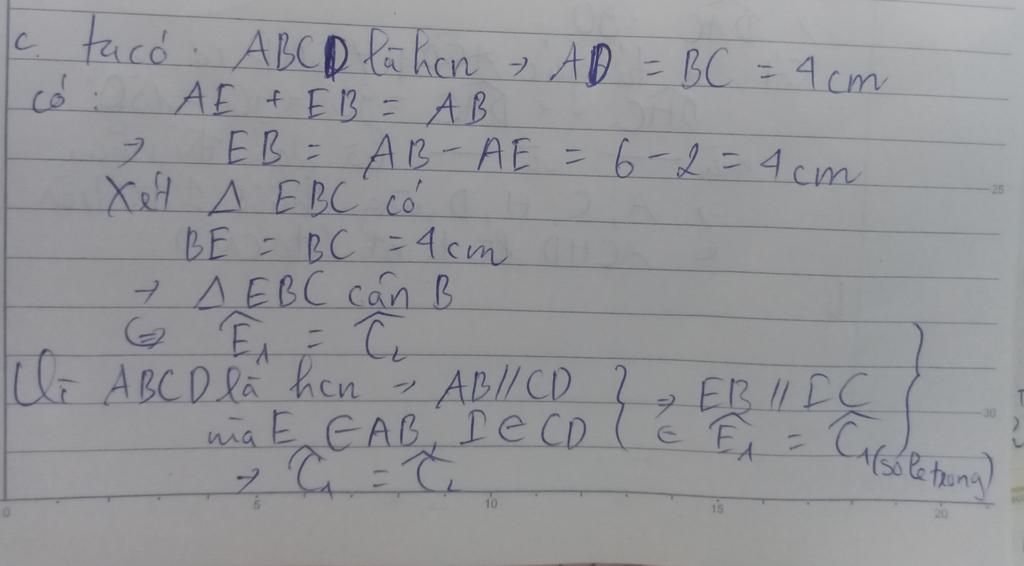 c. ta có : ABCD là hcn → AD = BC = 4 cm
có : AE + EB = AB
→ EB = AB - AE = 6 - 2 = 4 cm
Xét Δ EBC có
BE = BC = 4 cm
→ Δ EBC cân B
⇔ Ê₁ = Ĉ₂
Vì ABCD là hcn → AB // CD } → EB // IC
mà E ∈ AB, I ∈ CD } ∈ Ê₁ = Ĉ₁ (so le trong) }
→ Ĉ₁ = Ĉ₂
0 5 10 15 20
25
30